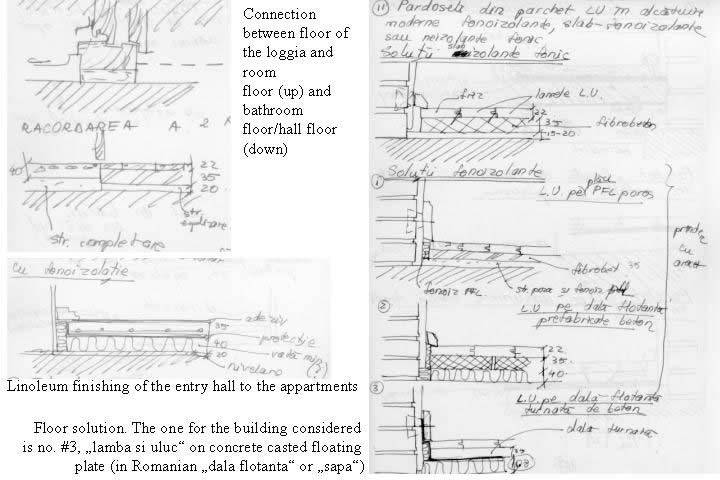 Connection
between floor of
the loggia and
room
floor (up) and
bathroom
floor/hall floor
(down)
RACORDAREA A 2
40
22
35
20
str.
str. completare
cu fonoizolație
adeziv
35
protecție
40
vată min
20
nivelare
(?)
Linoleum finishing of the entry hall to the appartments
Floor solution. The one for the building considered
is no. #3, „lamba si uluc“ on concrete casted floating
plate (in Romanian „dala flotanta“ or „sapa“)
11) Pardoseli din parchet LU în alcătuire
moderne fonoizolante, slab-fonoizolante
sau neizolante fonic
Soluții slab izolante fonic
friz
lamele L.U.
22
35
15-20
fibrobeton
1
Soluții fonoizolante
L.U. pe plăci PFL poros
prinde
cu
fibrobet 35
fonoiz PFL
str. poza si fonoiz
2
L.U pe dala flotanta
prefabricate beton
22
35
40
3
L.U. pe dala flotanta
turnata de beton
dala turnata